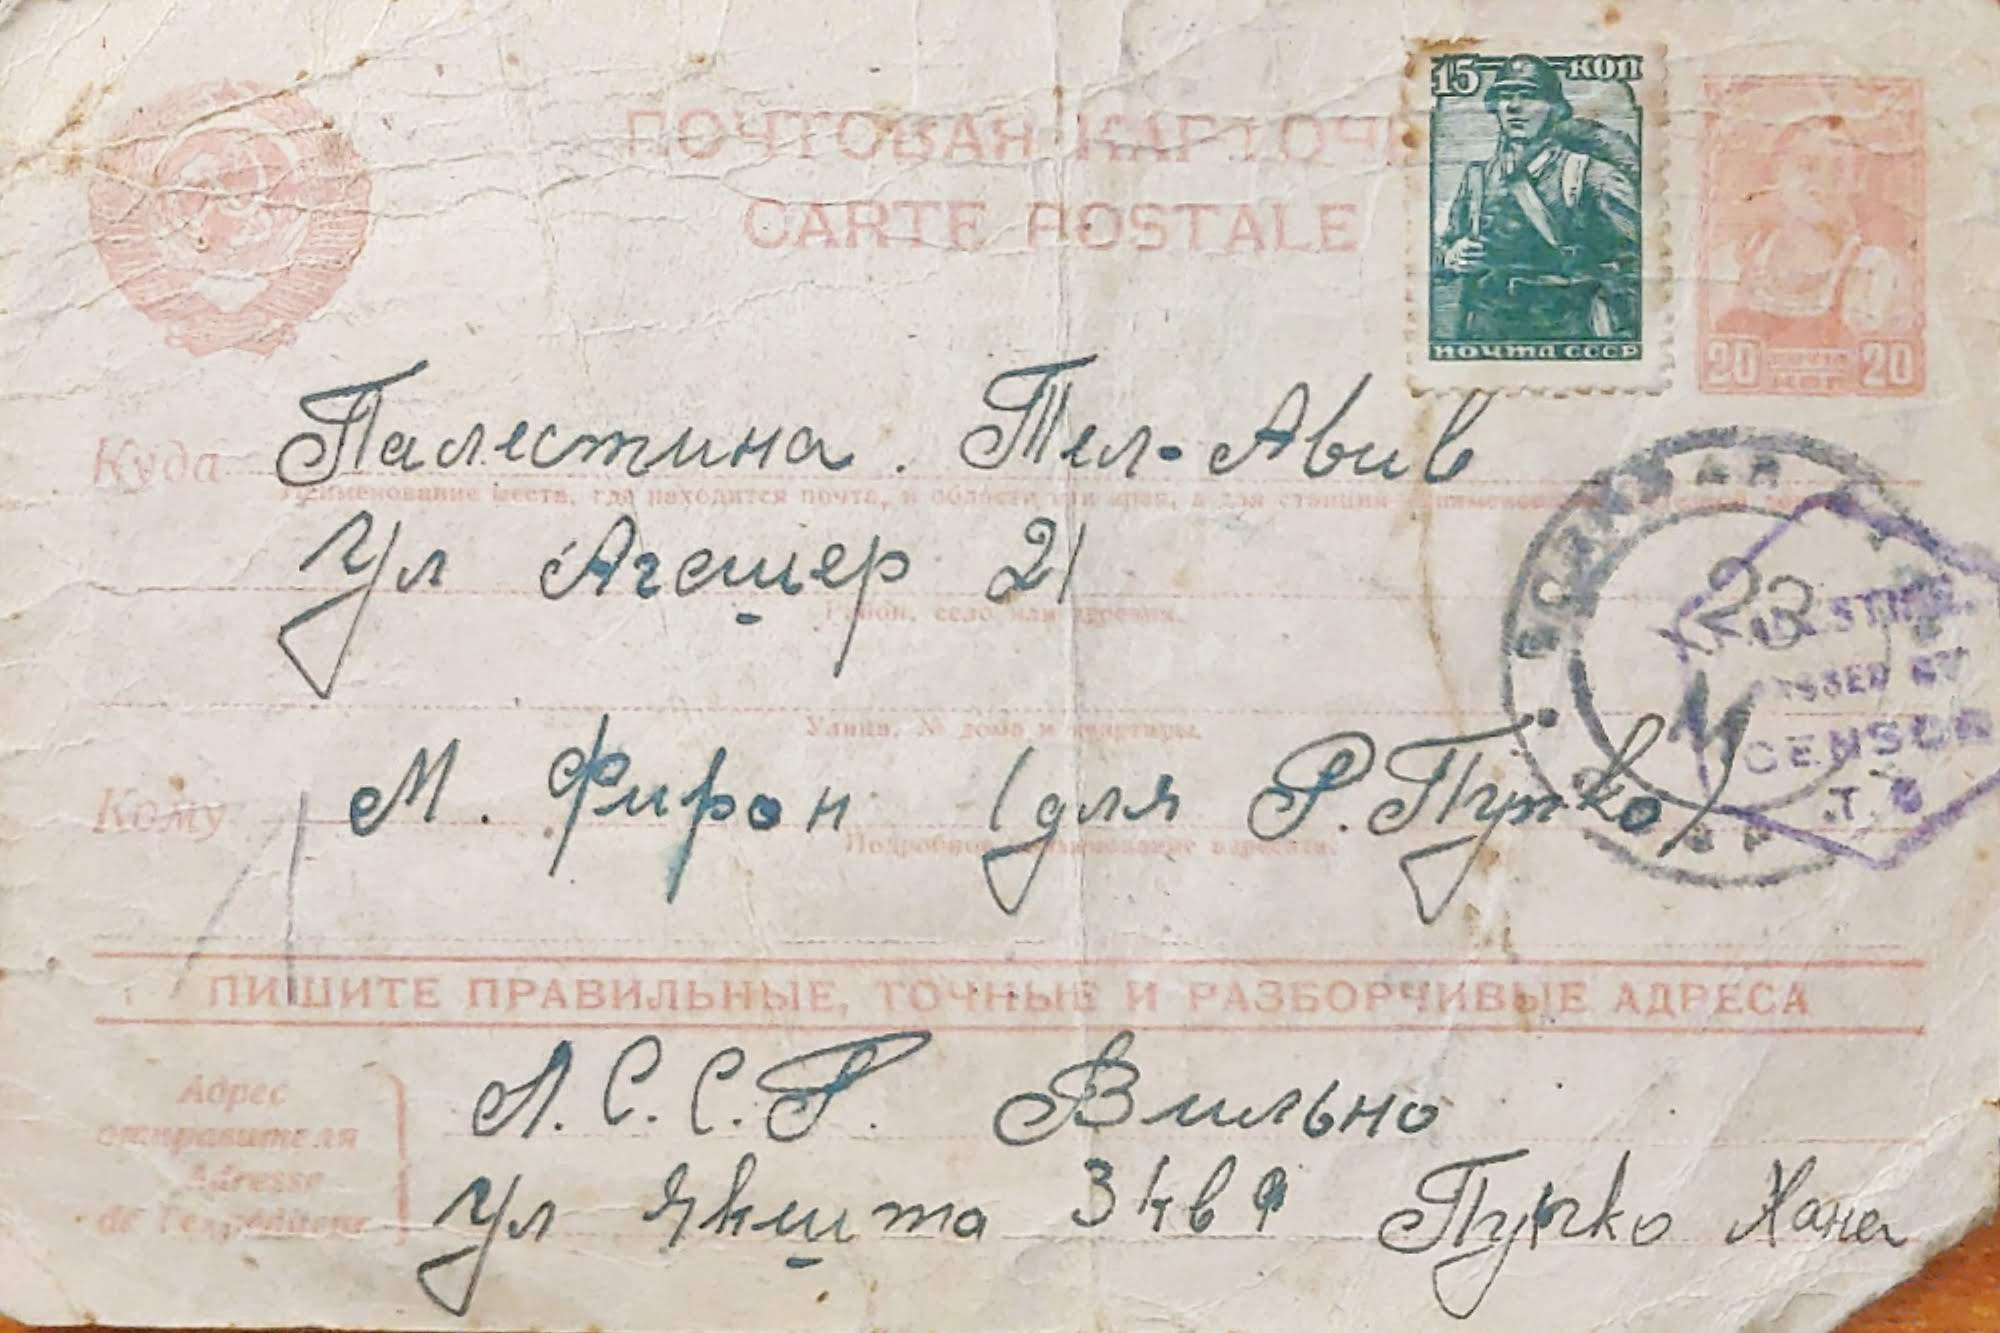 ПОЧТОВАЯ КАРТОЧ
CARTE POSTALE
15 КОП
ПОЧТА СССР
20 ПОЧТА 20
КОП
Куда Палестина. Тел-Авив
Наименование места, где находится почта, и области или края, а для станции
Ул Агешер 21
Район, село или деревня.
Улица, № дома и квартиры.
Кому М. Фирон (для Р. Пупко)
Подробное наименование адресата.
23
PALESTINE
PASSED BY
CENSOR
T.
ПИШИТЕ ПРАВИЛЬНЫЕ, ТОЧНЫЕ И РАЗБОРЧИВЫЕ АДРЕСА
Адрес
отправителя
Adresse
de l'expéditeur
Л.С.С.Р. Вильно
Ул Якшта 3 кв 9 Пупко Хана